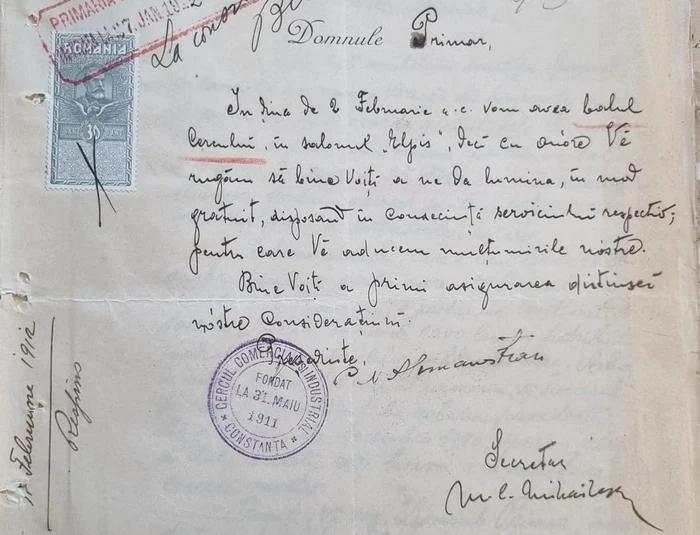 PRIMARIA
27 JAN. 1912
La
FINANCIAR
30
Domnule Primar,
In ziua de 2 Februarie a.c. vom avea balul
Cercului, in salonul „Elpis", deci cu onóre Vĕ
rugăm să bine Voiți a ne da lumina, în mod
gratuit, dispunând în consecință serviciului respectiv;
pentru care Vĕ aducem mulțumirile nóstre.
Bine Voiți a primi asigurarea distinsei
nóstre Considerațiuni.
Președinte,
CERCUL COMERCIAL ȘI INDUSTRIAL
FONDAT
LA 31 MAIU
1911
* CONSTANȚA *
Secretar
M. C. Mihăilescu
Februarie 1912
Respins